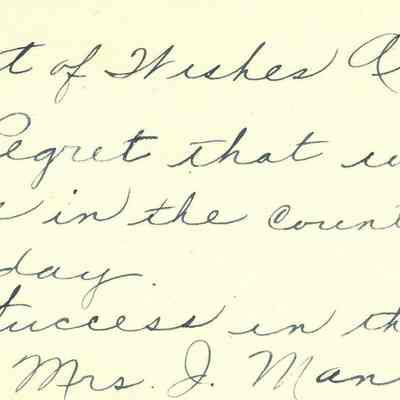 t of Wishes
Regret that
in the count
day.
Success in th
Mrs. J. Man